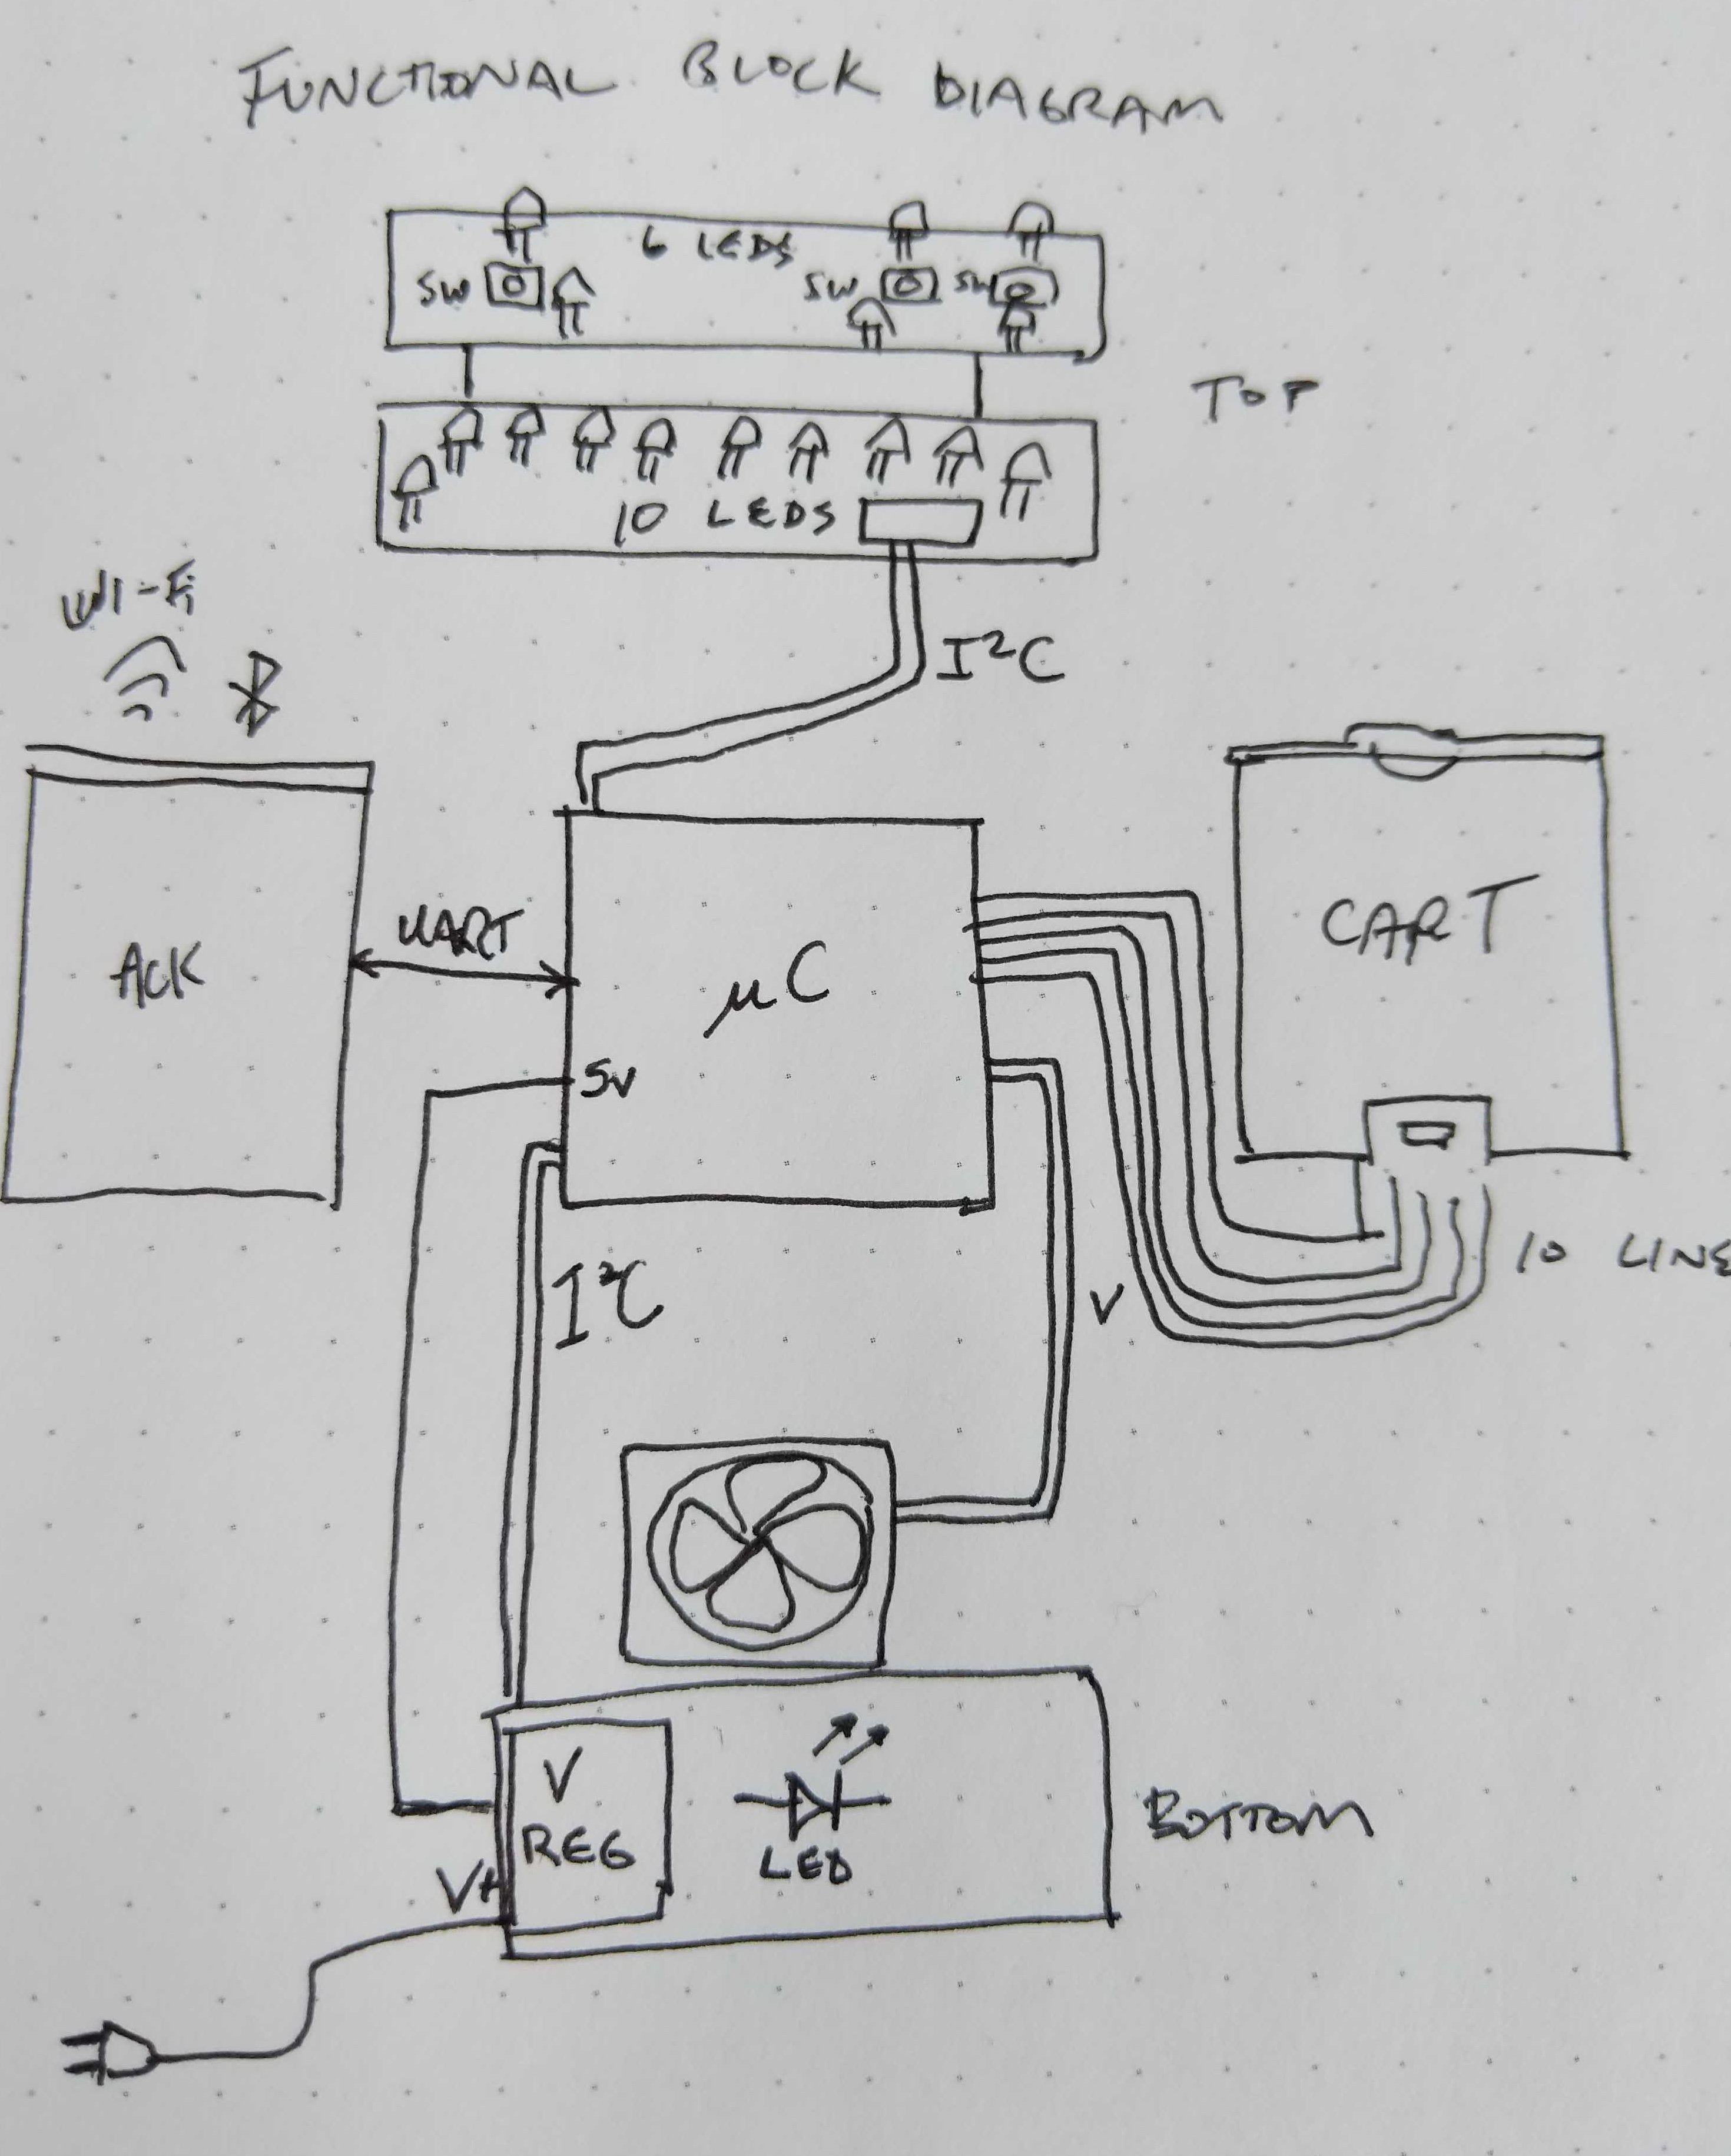 FUNCTIONAL BLOCK DIAGRAM
6 LEDS
SW SW SW
TOP
10 LEDS
WI-Fi
I²C
CART
UART
ACK
µC
5V
10 LINE
I²C
V
V
REG
LED
BOTTOM
V+